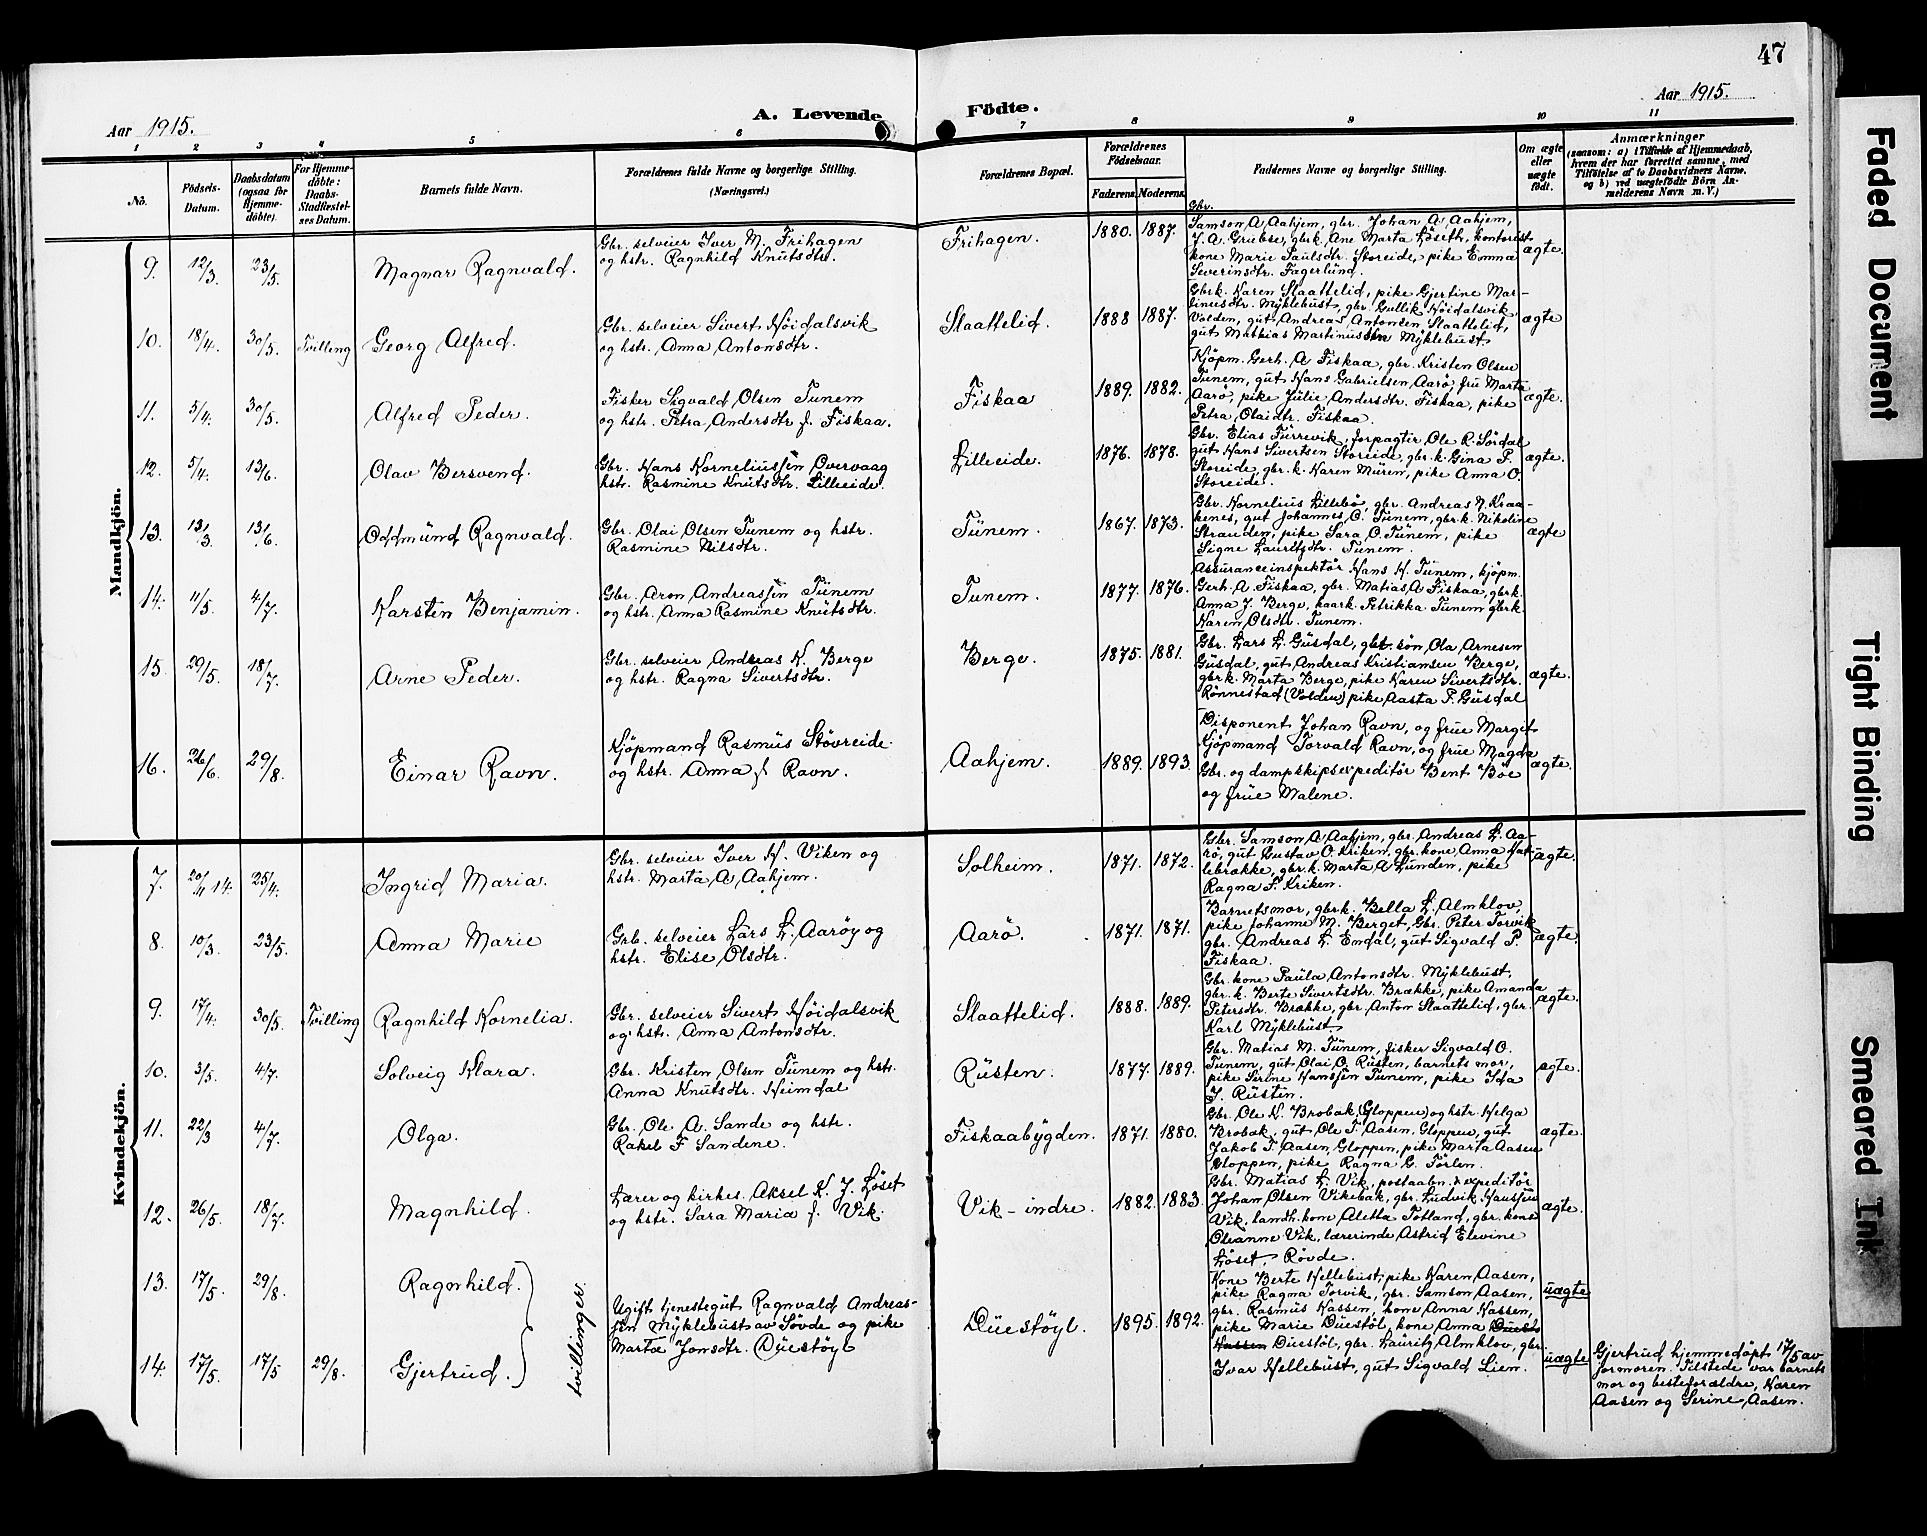 47
Aar 1915.
A. Levende Födte.
Aar 1915.
1 2 3 4 5 6 7 8 9 10 11
No.
Födsels-Datum.
Daabsdatum (ogsaa for Hjemmedöbte).
For Hjemmedöbte: Daabs-Stadfæstelses Datum.
Barnets fulde Navn.
Forældrenes fulde Navne og borgerlige Stilling.
(Næringsvei.)
Forældrenes Bopæl.
Forældrenes Födselsaar.
Faderens. Moderens.
Faddernes Navne og borgerlige Stilling.
Om ægte eller uægte födt.
Anmærkninger
(saasom: a) i Tilfælde af Hjemmedaab, hvem der har forrettet samme, med Tilföielse af to Daabsvidners Navne. og b) ved uægtefödte Börn Anmelderens Navn m. V.)
Mandkjön.
9. 12/3 23/5. Magnar Ragnvald.
Gbr. selveier Iver M. Frihagen
og hstr. Ragnhild Knutsdtr.
Frihagen. 1880. 1887.
Gbr.
Samson A Aahjem, gbr. Johan A Aahjem,
J. A. Grubse, gbrk. Ane Marta Löseth, kontorist
kone Marie Paulsdtr. Storeide, pike Emma
Severinsdtr. Fagerlund.
ægte.
10. 18/4. 30/5. Tvilling Georg Alfred.
Gbr. selveier Sivert Höidalsvik
og hstr. Anna Antonsdtr.
Slaattelid. 1888 1887.
Gbrk. Karen Slaattelid, pike Gjertine Mar-
tinusdtr. Myklebust, gbr. Gullik Höidalsvik
Volden, gut Andreas Antonsen Slaattelid,
gut Mathias Martinussen Myklebust
ægte
11. 5/4. 30/5. Alfred Peder.
Fisker Sigvald Olsen Tunem
og hstr. Petra Andersdtr f. Fiskaa.
Fiskaa 1889. 1882.
Kjöpm. Gerh. A Fiskaa, gbr. Kristen Olsen
Tunem, gut Hans Gabrielsen Aarö, fru Marta
Aarö, pike Julie Andersdtr. Fiskaa, pike
Petra Olaidtr. Fiskaa.
ægte.
12. 5/4. 13/6. Olav Bersvend.
Gbr. Hans Korneliussen Overvaag
hstr. Rasmine Knutsdtr. Lilleeide.
Lilleeide. 1876. 1878.
Gbr. Elias Turrevik, forpagter Ole R. Sördal
gut Hans Sivertsen Storeide, gbr.k. Gina P.
Storeide, gbr.k. Karen Muren, pike Anna O.
Storeide.
ægte.
13. 13/3. 13/6. Oddmund Ragnvald.
Gbr. Olai Olsen Tunem og hstr.
Rasmine Nilsdtr.
Tunem. 1867. 1873.
Gbr. Kornelius Lillebö, gbr. Andreas N. Kraa-
kenes, gut Johannes O. Tunem, gbr.k. Nikoline
Stranden, pike Sara O. Tunem, pike
Signe Lauritzdtr. Tunem.
ægte
14. 11/5. 4/7. Karsten Benjamin.
Gbr. Aron Andreassen Tunem
og hstr. Anna Rasmine Knutsdtr.
Tunem. 1877. 1876.
Assuranceinspektör Hans K. Tunem, kjöpm.
Gerh. A Fiskaa, gbr. Matias A Fiskaa, gbrk.
Anna J. Berge, kaark. Petrikka Tunem gbrk.
Karen Olsdtr. Tunem.
15. 29/5. 18/7. Arne Peder.
Gbr. selveier Andreas K. Berge
og hstr. Ragna Sivertsdtr.
Berge. 1875. 1881.
Gbr. Lars L. Gusdal, gbr. sön Ola Arnesen
Gusdal, gut Andreas Kristiansen Berge,
gbrk. Marta Berge, pike Karen Sivertsdtr.
Rönnestad (Volden) pike Aasta P. Gusdal
ægte.
16. 26/6. 29/8. Einar Ravn.
Kjöpmand Rasmus Stövreide
og hstr. Anna f. Ravn.
Aahjem. 1889. 1893.
Disponent Johan Ravn, og frue Margit
Kjöpmand Torvald Ravn, og frue Magda
Gbr. og dampskipsexpeditör Bent Böe
og frue Malene.
ægte.
Kvindekjön.
7. 20/11 14. 25/4. Ingrid Maria.
Gbr. selveier Iver K. Viken og
hstr. Marta A Aahjem.
Solheim. 1871. 1872.
Gbr. Samson A Aahjem, gbr. Andreas L. Aa-
rö, gut Gustav O. Kriken, gbr. kone Anna Hak-
lebrække, gbr.k. Marta A Lunden, pike
Ragna F. Kriken.
ægte.
8. 10/3. 23/5. Anna Marie
Grb. selveier Lars L. Aaröy og
hstr. Elise Olsdtr.
Aarö. 1871. 1871.
Barnets mor, gbrk. Bella L. Almklov,
pike Johanne M. Berget, Gbr. Peter Torvik
gbr. Andreas L. Emdal, gut Sigvald P.
Fiskaa.
ægte.
9. 17/4. 30/5. Tvilling Ragnhild Kornelia.
Gbr. selveier Sivert Höidalsvik
og hstr. Anna Antonsdtr.
Slaattelid. 1888. 1889.
Gbr. kone Paula Antonsdtr. Myklebust,
gbr.k. Berte Sivertsdtr. Brække, pike Amanda
Petersdtr. Brække, gbr. Anton Slaattelid, gbr.
Karl Myklebust.
ægte.
10. 3/5. 4/7. Solveig Klara.
Gbr. Kristen Olsen Tunem og hstr.
Anna Knutsdtr. Heimdal
Rusten. 1877. 1889.
Gbr. Matias M. Tunem, fisker Sigvald O.
Tunem, gut Olai O. Rusten, barnets mor,
pike Serine Hanssen Tunem, pike Ida
J. Rusten.
ægte.
11. 22/3 4/7. Olga.
Gbr. Ole A. Sande og hstr.
Rakel F Sandene.
Fiskaabygden. 1871. 1880.
Gbr. Ole K. Brobak, (Gloppen) og hstr. Helga
Brobak, gut Ole T. Aasen, Gloppen, gut
Jakob T. Aasen, Gloppen, pike Marta Aasen
Gloppen, pike Ragna G. Törlen.
ægte.
12. 26/5. 18/7. Magnhild.
Lærer og kirkes. Aksel K. J. Löset
og hstr. Sara Maria f. Vik.
Vik-indre. 1882. 1883.
Gbr. Matias L. Vik, postaabn. & expeditör
Johan Olsen Vikebak, gbr. Ludvik Hanssen
Vik, landh. kone Aletta Totland, gbr. kone
Oleanne Vik, lærerinde Astrid Elevine
Löset, Rövde.
ægte.
13. 17/5. 29/8. Ragnhild.
14. 17/5. 17/5 29/8. Gjertrud.
tvillinger.
Ugift tjenestegut Ragnvald Andreas-
sen Myklebust av Sövde og pike
Marta Jonsdtr. Duestöyl
Duestöyl. 1895. 1892.
Kone Berte Hellebust, pike Karen Aasen,
pike Ragna Torvik, gbr. Samson Aasen,
gbr. Rasmus Hassen, kone Anna Hassen,
pike Marie Duestöl, kone Anna Duestöl
Hassen Duestöl, gbr. Lauritz Almklov, gbr.
Ivar Hellebust, gut Sigvald Liem.
uægte
uægte
Gjertrud hjemmedöpt 17/5 av
formoren. Tilstede var barnets
mor og besteforældre, Karen
Aasen og Serine Aasen.
Faded Document
Tight Binding
Smeared Ink